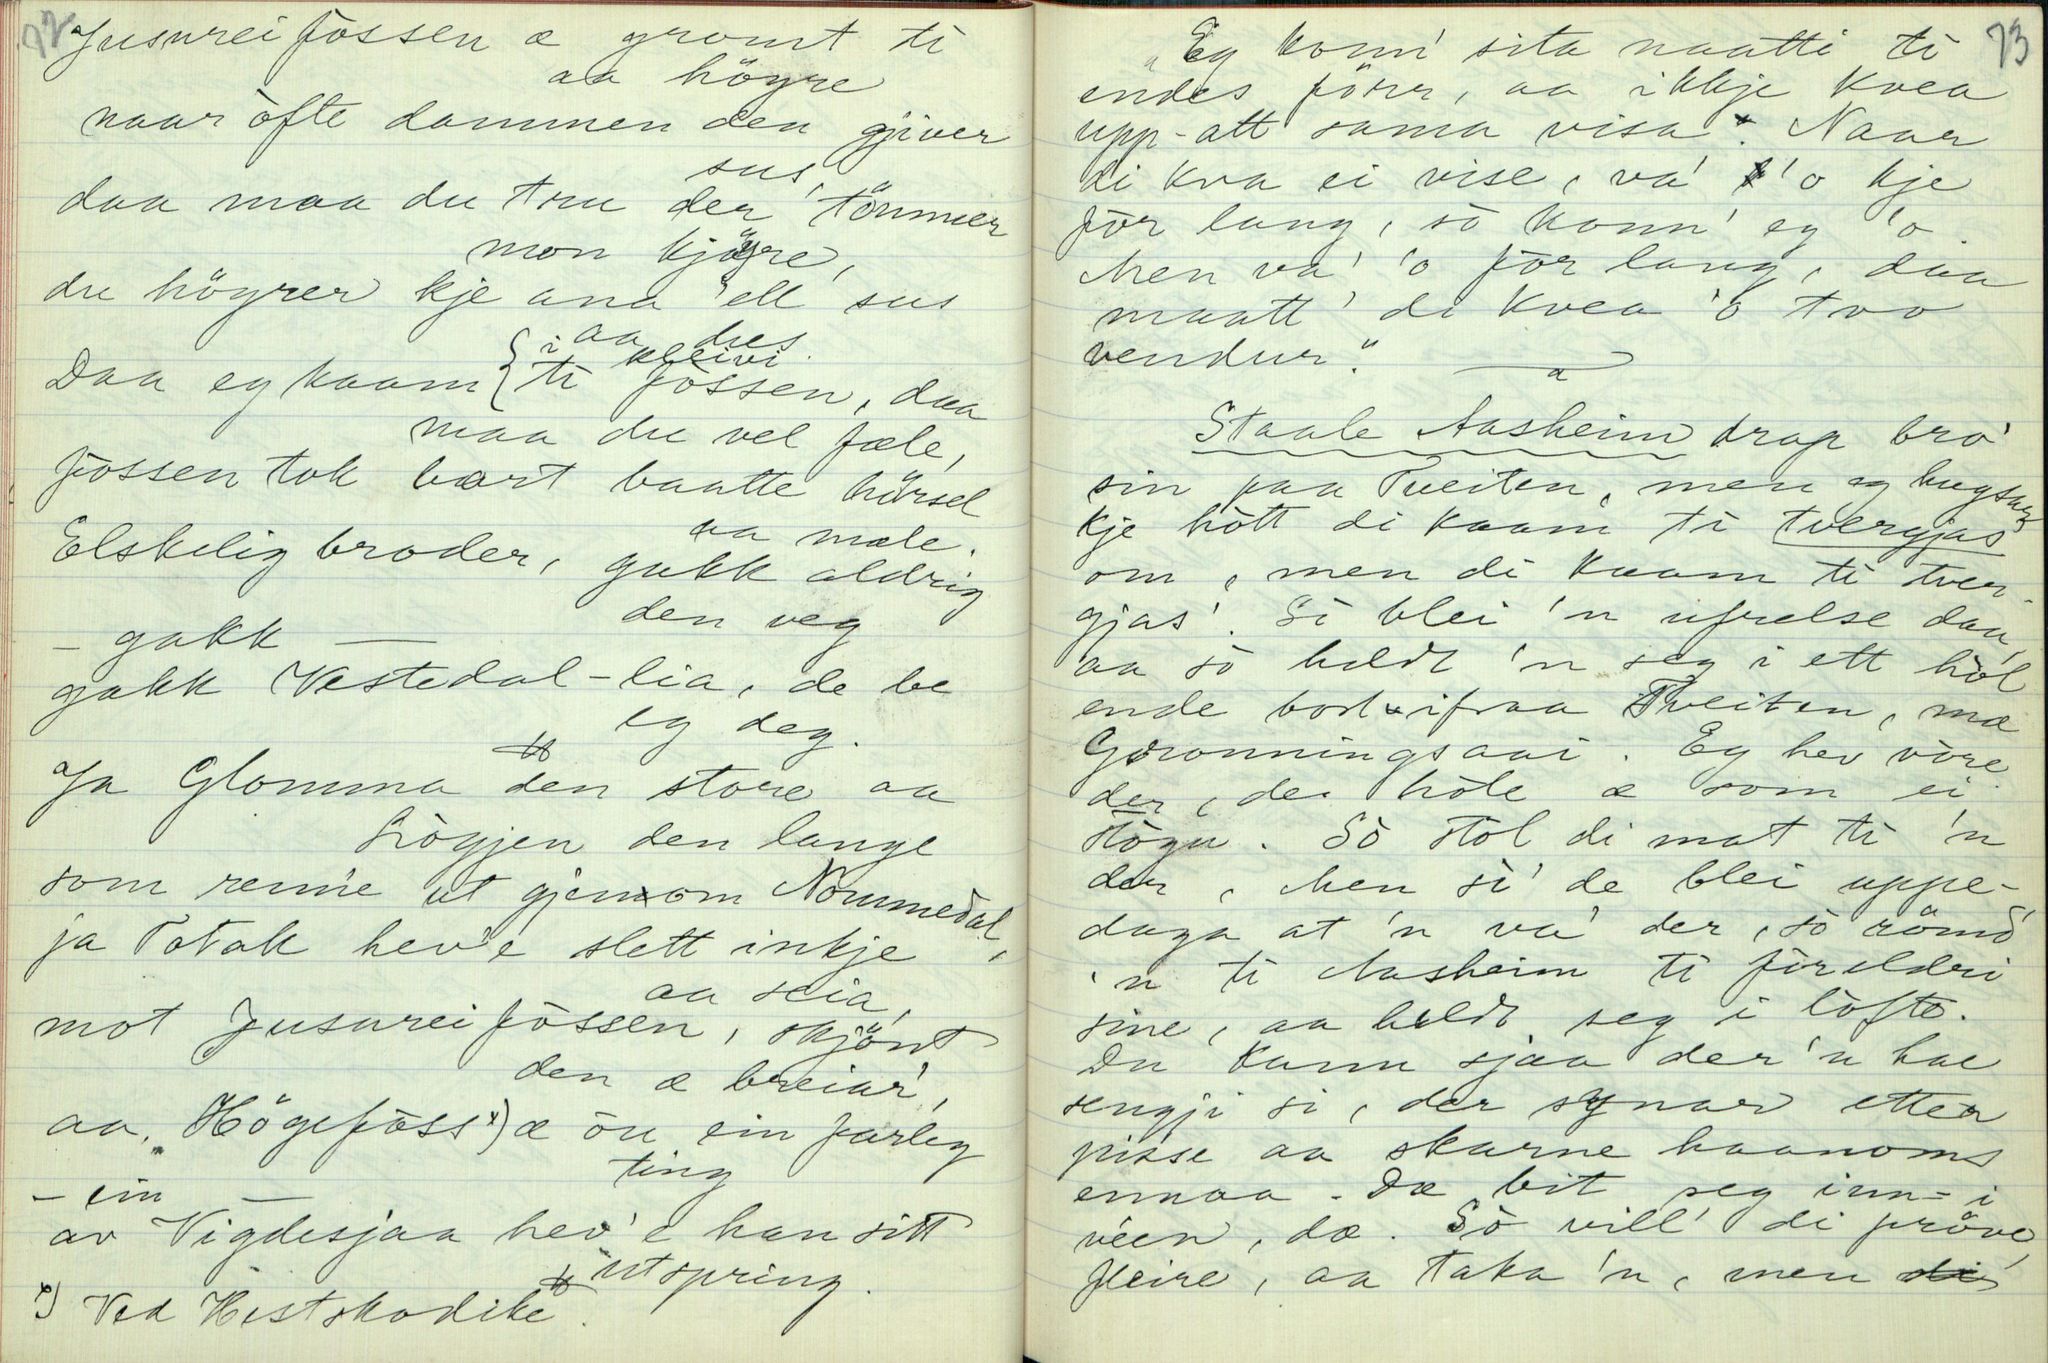 72
Jusureifòssen æ gromt ti
aa höyre
naar òfte dammen den gjiver
sus,
daa maa du tru der tömmer
mon kjöyre,
du höyrer kje ana 'ell sus
aa dus
Daa eg kaam { i kleivi
ti fòssen, daa
maa du vel fæle,
fòssen tok bort baatte hörsel
aa mæle.
Elskelig broder, gakk aldrig
den veg
– gakk —
gakk Vestedal-lia, de be
eg deg.
Ja Glomma den store aa
Lògjen den lange
som renn'e ut gjenom Nommedal,
ja Totak hev'e slett inkje
aa seia,
mot Jusureifòssen, skjönt
den æ breiar',
aa Högefòss x) æ òu ein farleg
ting
– ein —
av Vigdesjaa hev'e han sitt
utspring.
x) Ved Hestskodike.
73
"Eg konn' sita naatti ti
endes förr, aa ikkje kvea
upp-att sama visa. Naar
di kva ei vise, va' 'o kje
fòr lang, sò konn' eg 'o.
Men va' 'o fòr lang, daa
maatt' di kvea 'o tvo
vendur."
Staale Aasheim drap bro'
sin paa Tveiten, men eg hugsar
kje hòtt di kaam ti tvergjas'
om, men di kaam ti tver-
gjas'. Si blei 'n ufrelse daa,
aa sò heldt 'n seg i ett hòl
ende bort ifraa Tveiten, mæ
Gronningsaai. Eg hev vòre
der, de hòle æ som ei
stògu. Sò stòl di mat ti 'n
der, Men si' de blei uppe-
daga at 'n va' der, sò römd'
'n ti Aasheim ti foreldri
sine, aa heldt seg i lòfte.
Du kann sjaa der 'n hae
sengji si, der synar etter
pisse aa skarne haanoms
ennaa. Dæ bit seg inn-i
véen, dæ. Sò vill' di pröve
fleire, aa taka 'n, men